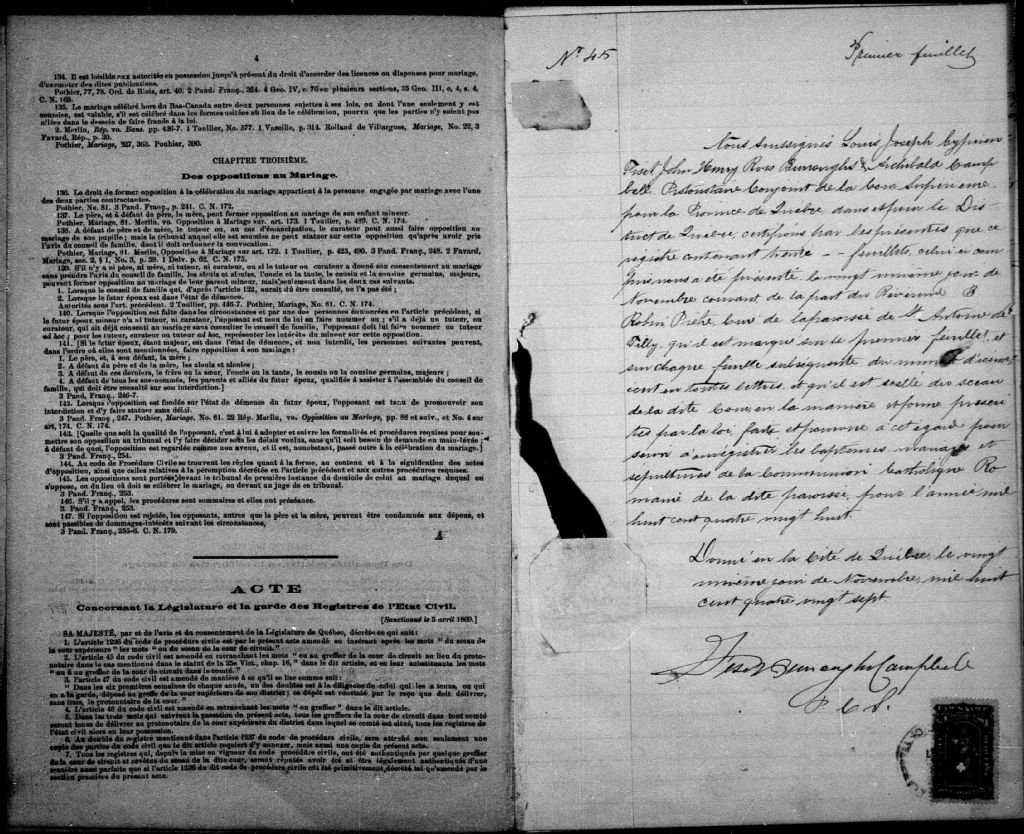 4
134. Il est loisible aux autorités en possession jusqu'à présent du droit d'accorder des licences ou dispenses pour mariage,
d'exempter des dites publications.
Pothier, 77, 78. Ord. de Blois, art. 40. 2 Pand. Franç., 324. 4 Geo. IV, c. 76 en plusieurs sections, 35 Geo. III, c, 4, s. 4,
C. N. 169.
135. Le mariage célébré hors du Bas-Canada entre deux personnes sujettes à ses lois, ou dont l'une seulement y est
soumise, est valable, s'il est célébré dans les formes usitées au lieu de la célébration, pourvu que les parties n'y soient pas
allées dans le dessein de faire fraude à la loi.
2 Merlin, Rép. vo. Bans. pp. 436-7. 1 Toullier, No. 577. 1 Vazeille, p. 314. Rolland de Villargues, Mariage, No. 22, 3
Favard, Rép., p. 30.
Pothier, Mariage, 227, 363. Pouhier, 390.
CHAPITRE TROISIÈME.
Des oppositions au Mariage.
136. Le droit de former opposition à la célébration du mariage appartient à la personne engagée par mariage avec l'une
des deux parties contractantes.
Pothier, No. 81. 3 Pand. Franç., p. 241. C. N. 172.
137. Le père, et à défaut du père, la mère, peut former opposition au mariage de son enfant mineur.
Pothier, Mariage, 81. Merlin, vo. Opposition à Mariage sur art. 173. 1 Toullier, p. 489. C. N. 173.
138. A défaut de père et de mère, le tuteur ou, au cas d'émancipation, le curateur peut aussi faire opposition au
mariage de son pupille; mais le tribunal auquel elle est soumise ne peut statuer sur cette opposition qu'après avoir pris
l'avis du conseil de famille, dont il doit ordonner la convocation.
Pothier, Mariage, 81. Merlin, vo. Opposition à Mariage sur art. 172. 1 Toullier, p. 425, 490. 3 Pand. Franç., 248. 2 Favard,
Mariage, sec. 2, § 1, No. 3, p. 39. 1 Delv. p. 62. C. N. 175.
139. S'il n'y a ni père, ni mère, ni tuteur, ni curateur, ou si le tuteur ou curateur a donné son consentement au mariage
sans prendre l'avis du conseil de famille, les aïeuls et aïeules, l'oncle et la tante, le cousin et la cousine germains, majeurs,
peuvent former opposition au mariage de leur parent mineur, mais seulement dans les deux cas suivants.
1. Lorsque le conseil de famille qui, d'après l'article 122, aurait dû être consulté, ne l'a pas été;
2. Lorsque le futur époux est dans l'état de démence.
Autorités sous l'art. précédent. 2 Toullier, pp. 446-7. Pothier, Mariage, No. 81. C. N. 174.
140. Lorsque l'opposition est faite dans les circonstances et par une des personnes énumérées en l'article précédent, si
le futur époux mineur n'a ni tuteur, ni curateur, l'opposant est tenu de lui en faire nommer un; s'il a déjà un tuteur, ou
curateur, qui ait déjà consenti au mariage sans consulter le conseil de famille, l'opposant doit lui faire nommer un tuteur
ad hoc; pour les tuteur, curateur ou tuteur ad hoc, représenter les intérêts du mineur sur cette opposition.
141. [Si le futur époux, étant majeur, est dans l'état de démence, et non interdit, les personnes suivantes peuvent,
dans l'ordre où elles sont mentionnées, faire opposition à son mariage:
1. Le père, et, à son défaut, la mère;
2. A défaut du père et de la mère, les aïeuls et aïeules;
3. A défaut de ces derniers, le frère ou la sœur, l'oncle ou la tante, le cousin ou la cousine germains, majeurs;
4. A défaut de tous les sus-nommés, les parents et alliés du futur époux, qualifiés à assister à l'assemblée du conseil
de famille, qui doit être consulté sur son interdiction.]
3 Pand. Franç., 246-7.
142. Lorsque l'opposition est fondée sur l'état de démence du futur époux, l'opposant est tenu de promouvoir son
interdiction et d'y faire statuer sans délai.
3 Pand. Franç., 247. Pothier, Mariage. No. 81. 22 Rép. Merlin, vo. Opposition au Mariage, pp. 88 et suiv., et No. 4 sur
art, 174. C. N. 174.
143. [Quelle que soit la qualité de l'opposant, c'est à lui à adopter et suivre les formalités et procédures requises pour sou-
mettre son opposition au tribunal et l'y faire décider sous les délais voulus, sans qu'il soit besoin de demande en main-levée;
à défaut de quoi, l'opposition est regardée comme non avenu, et il est, nonobstant, passé outre à la célébration du mariage.]
3 Pand. Franç., 254.
144. Au code de Procédure Civile se trouvent les règles quant à la forme, au contenu et à la signification des actes
d'opposition, ainsi que celles relatives à la péremption décrétée en l'article précédent et aux autres procédures requises.
145. Les oppositions sont portées devant le tribunal de première instance du domicile de celui au mariage duquel on
s'oppose, ou du lieu où doit se célébrer le mariage, ou devant un juge de ce tribunal.
3 Pand. Franç., 253.
146. S'il y a appel, les procédures sont sommaires et elles ont préséance.
3 Pand. Franç., 253.
147. Si l'opposition est rejetée, les opposants, autres que le père et la mère, peuvent être condamnés aux dépens, et
sont passibles de dommages-intérêts suivant les circonstances,
3 Pand. Franç., 255-6. C. N. 179.
ACTE
Concernant la Législature et la garde des Registres de l'Etat Civil.
[Sanctionné le 5 avril 1869.]
SA MAJESTÉ, par et de l'avis et du consentement de la Législature de Québec, décrète ce qui suit:
1. L'article 1236 du code de procédure civile est par le présent acte amendé en insérant après les mots "du sceau de
la cour supérieure" les mots "ou du sceau de la cour de circuit."
2. L'article 45 du code civil est amendé en retranchant les mots "ou au greffier de la cour de circuit au lieu du proto-
notaire dans le cas mentionné dans le statut de la 25e Vict., chap. 16," dans le dit article, et en leur substituant les mots
"ou à un greffier de la cour de circuit dans le comté."
3. L'article 47 du code civil est amendé de manière à ce qu'il se lise comme suit:
"Dans les six premières semaines de chaque année, un des doubles est à la diligence de celui qui les a tenus, ou qui
en a la garde, déposé au greffe de la cour supérieure de son district; ce dépôt est constaté par le reçu que doit délivrer,
sans frais, le protonotaire de la cour."
4. L'article 48 du code civil est amendé en retranchant les mots "ou greffier" dans le dit article.
5. Dans les trois mois qui suivront la passation du présent acte, tous les greffiers de la cour de circuit dans tout comté
seront tenus de délivrer au protonotaire de la cour supérieure du district dans lequel se comté est situé, tous les registres de
l'état civil alors en leur possession.
6. Au double du registre mentionné dans l'article 1237 du code de procédure civile, sera attaché non seulement une
copie des parties du code civil que le dit article requiert d'y annexer, mais aussi une copie du présent acte.
7. Tous les registres qui, depuis la mise en vigueur du code procédure civile, ont été authentiqués par quelque greffier
de la cour de circuit et revêtus du sceau de la dite cour, seront réputés avoir été et être légalement authentiqués d'une
manière aussi parfaite que si l'article 1236 du dit code de procédure civile eût été primitivement décrété tel qu'amendé par le
section première du présent acte.
No 45
Premier feuillet
Nous soussignés Louis Joseph Cyprien
Fiset John Henry Ross Burroughs & Archibald Camp
bell Protonotaire Conjoint de la Cour Supérieure
pour la Province de Québec dans et pour le Dis
trict de Québec, certifions par les présentes que ce
registre contenant trente - - feuillets, celui-ci com
pris nous a été présenté le vingt neuvième jour de
Novembre courant de la part du Révérend B
Robin Prêtre, Curé de la paroisse de St Antoine de
Tilly, qu'il est marqué sur le premier feuillet, et
sur chaque feuille subséquente du numéro d'icelui
écrit en toutes lettres, et qu'il est scellé du sceau
de la dite Cour, en la manière et forme prescri
tes par la loi, faite et pourvue à cet égard pour
servir à enregistrer les baptêmes mariages et
sépultures de la Communion Catholique Ro
maine de la dite paroisse, pour l'année mil
huit cent quatre vingt huit.
Donné en la Cité de Québec le vingt
neuvième jour de Novembre, mil huit
cent quatre vingt sept.
Fiset Burroughs Campbell
P. C. S.